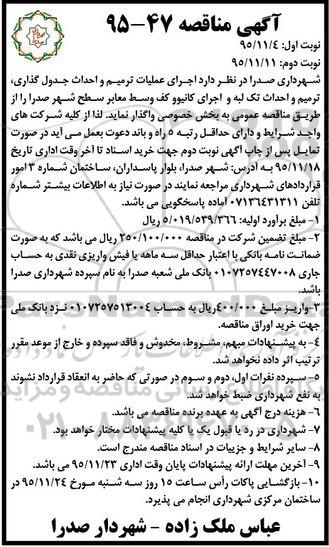 آگهی مناقصه ۴۷-۹۵
نوبت اول: ۹۵/۱۱/۴
نوبت دوم: ۹۵/۱۱/۱۱
شهرداری صدرا در نظر دارد اجرای عملیات ترمیم و احداث جدول گذاری،
ترمیم و احداث تک لبه و اجرای کانیوو کف وسط معابر سطح شهر صدرا را از
طریق مناقصه عمومی به بخش خصوصی واگذار نماید. لذا از کلیه شرکت های
واجد شرایط و دارای حداقل رتبه ۵ راه و باند دعوت بعمل می آید در صورت
تمایل پس از چاپ آگهی نوبت دوم جهت خرید اسناد تا آخر وقت اداری تاریخ
۹۵/۱۱/۱۸ به آدرس: شهر صدرا، بلوار پاسداران، ساختمان شماره ۳ امور
قراردادهای شهرداری مراجعه نمایند در صورت نیاز به اطلاعات بیشتر شماره
تلفن ۰۷۱۳۶۴۳۱۳۱۱ آماده پاسخگویی می باشد.
۱- مبلغ براورد اولیه: ۵/۰۱۹/۵۳۹/۳۶۶ ریال
۲- مبلغ تضمین شرکت در مناقصه ۲۵۰/۱۰۰/۰۰۰ ریال می باشد که به صورت
ضمانت نامه بانکی با اعتبار حداقل سه ماهه یا فیش واریزی نقدی به حساب
جاری ۰۱۰۷۲۵۷۴۴۷۰۰۸ بانک ملی شعبه صدرا به نام سپرده شهرداری صدرا
باشد.
۳-واریز مبلغ ۴۰۰/۰۰۰ریال به حساب ۰۱۰۷۲۵۷۵۱۳۰۰۴ نزد بانک ملی
جهت خرید اوراق مناقصه.
۴- به پیشنهادات مبهم، مشروط، مخدوش و فاقد سپرده و خارج از موعد مقرر
ترتیب اثر داده نخواهد شد.
۵- سپرده نفرات اول، دوم و سوم در صورتی که حاضر به انعقاد قرارداد نشوند
به نفع شهرداری ضبط خواهد شد.
۶- هزینه درج آگهی به عهده برنده مناقصه می باشد.
۷- شهرداری در رد یا قبول یک یا کلیه پیشنهادات مختار خواهد بود.
۸- سایر شرایط و جزییات در اسناد مناقصه مندرج است.
۹- آخرین مهلت ارائه پیشنهادات پایان وقت اداری ۹۵/۱۱/۲۳ می باشد.
۱۰- بازگشایی پاکات رأس ساعت ۱۵ روز سه شنبه مورخ ۹۵/۱۱/۲۴ در
ساختمان مرکزی شهرداری انجام می پذیرد.
عباس ملک زاده - شهردار صدرا